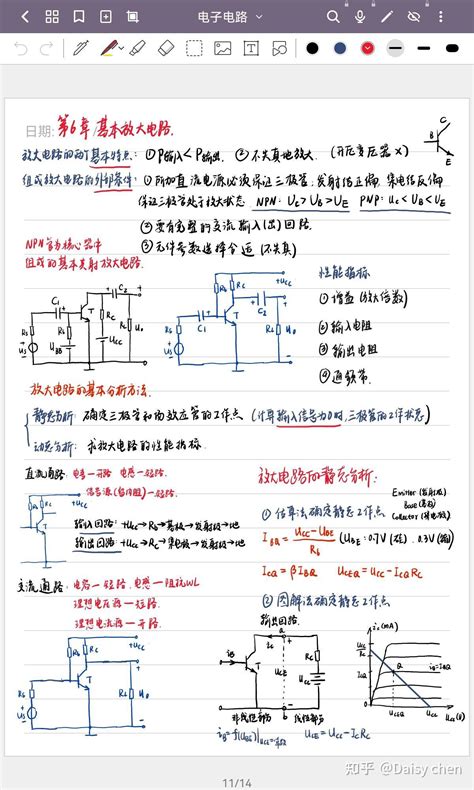 电子电路
日期: 第6章 基本放大电路.
放大电路的两个基本特点: ① P输入<P输出. ② 不失真地放大. (升压变压器 X)
组成放大电路的外部条件: ① 所加直流电源必须保证三极管, 发射结正偏, 集电结反偏
保证三极管处于放大状态. NPN: Uc>UB>UE PNP: Uc<UB<UE
② 要有完整的交流输入(出)回路.
③ 元件参数选择合适 (不失真)
B
C
E
NPN管为核心器件
组成的基本共射放大电路.
性能指标
① 增益 (放大倍数)
② 输入电阻
③ 输出电阻
④ 通频带.
C1
C2
T
Rc
UBB
Ucc
Us
Rs
+Ucc
Rb
Rc
C1
C2
T
放大电路的基本分析方法.
静态分析: 确定三极管和场效应管的工作点 (计算输入信号为0时, 三极管的工作状态)
动态分析: 求放大电路的性能指标.
直流通路: 电容一开路 电感一短路.
信号源 (留内阻)一短路.
+Ucc
输入回路: +Ucc→Rb→基极→发射极→地
输出回路: +Ucc→Rc→集电极→发射极→地
交流通路: 电容一短路. 电感一阻抗WL
理想电压源一短路
理想电流源一开路.
+Ucc
Rb
Rc
T
RL
Us
放大电路的静态分析.
Emitter (发射极)
Base (基极)
Collector (集电极)
① 估算法确定静态工作点.
IBQ = (Ucc-UBE)/Rb (UBE: 0.7V (硅). 0.3V (锗))
ICQ = βIBQ UCEQ = Ucc-ICQRc
② 图解法确定静态工作点
输出回路.
a
iB
ic
T
Rc
Ucc
b
非线性部分
线性部分
UCE = Ucc-IcRc
ic(mA)
Ucc/Rc
ICQ
Q
UCEQ
Ucc
知乎 @Daisy chen
11/14